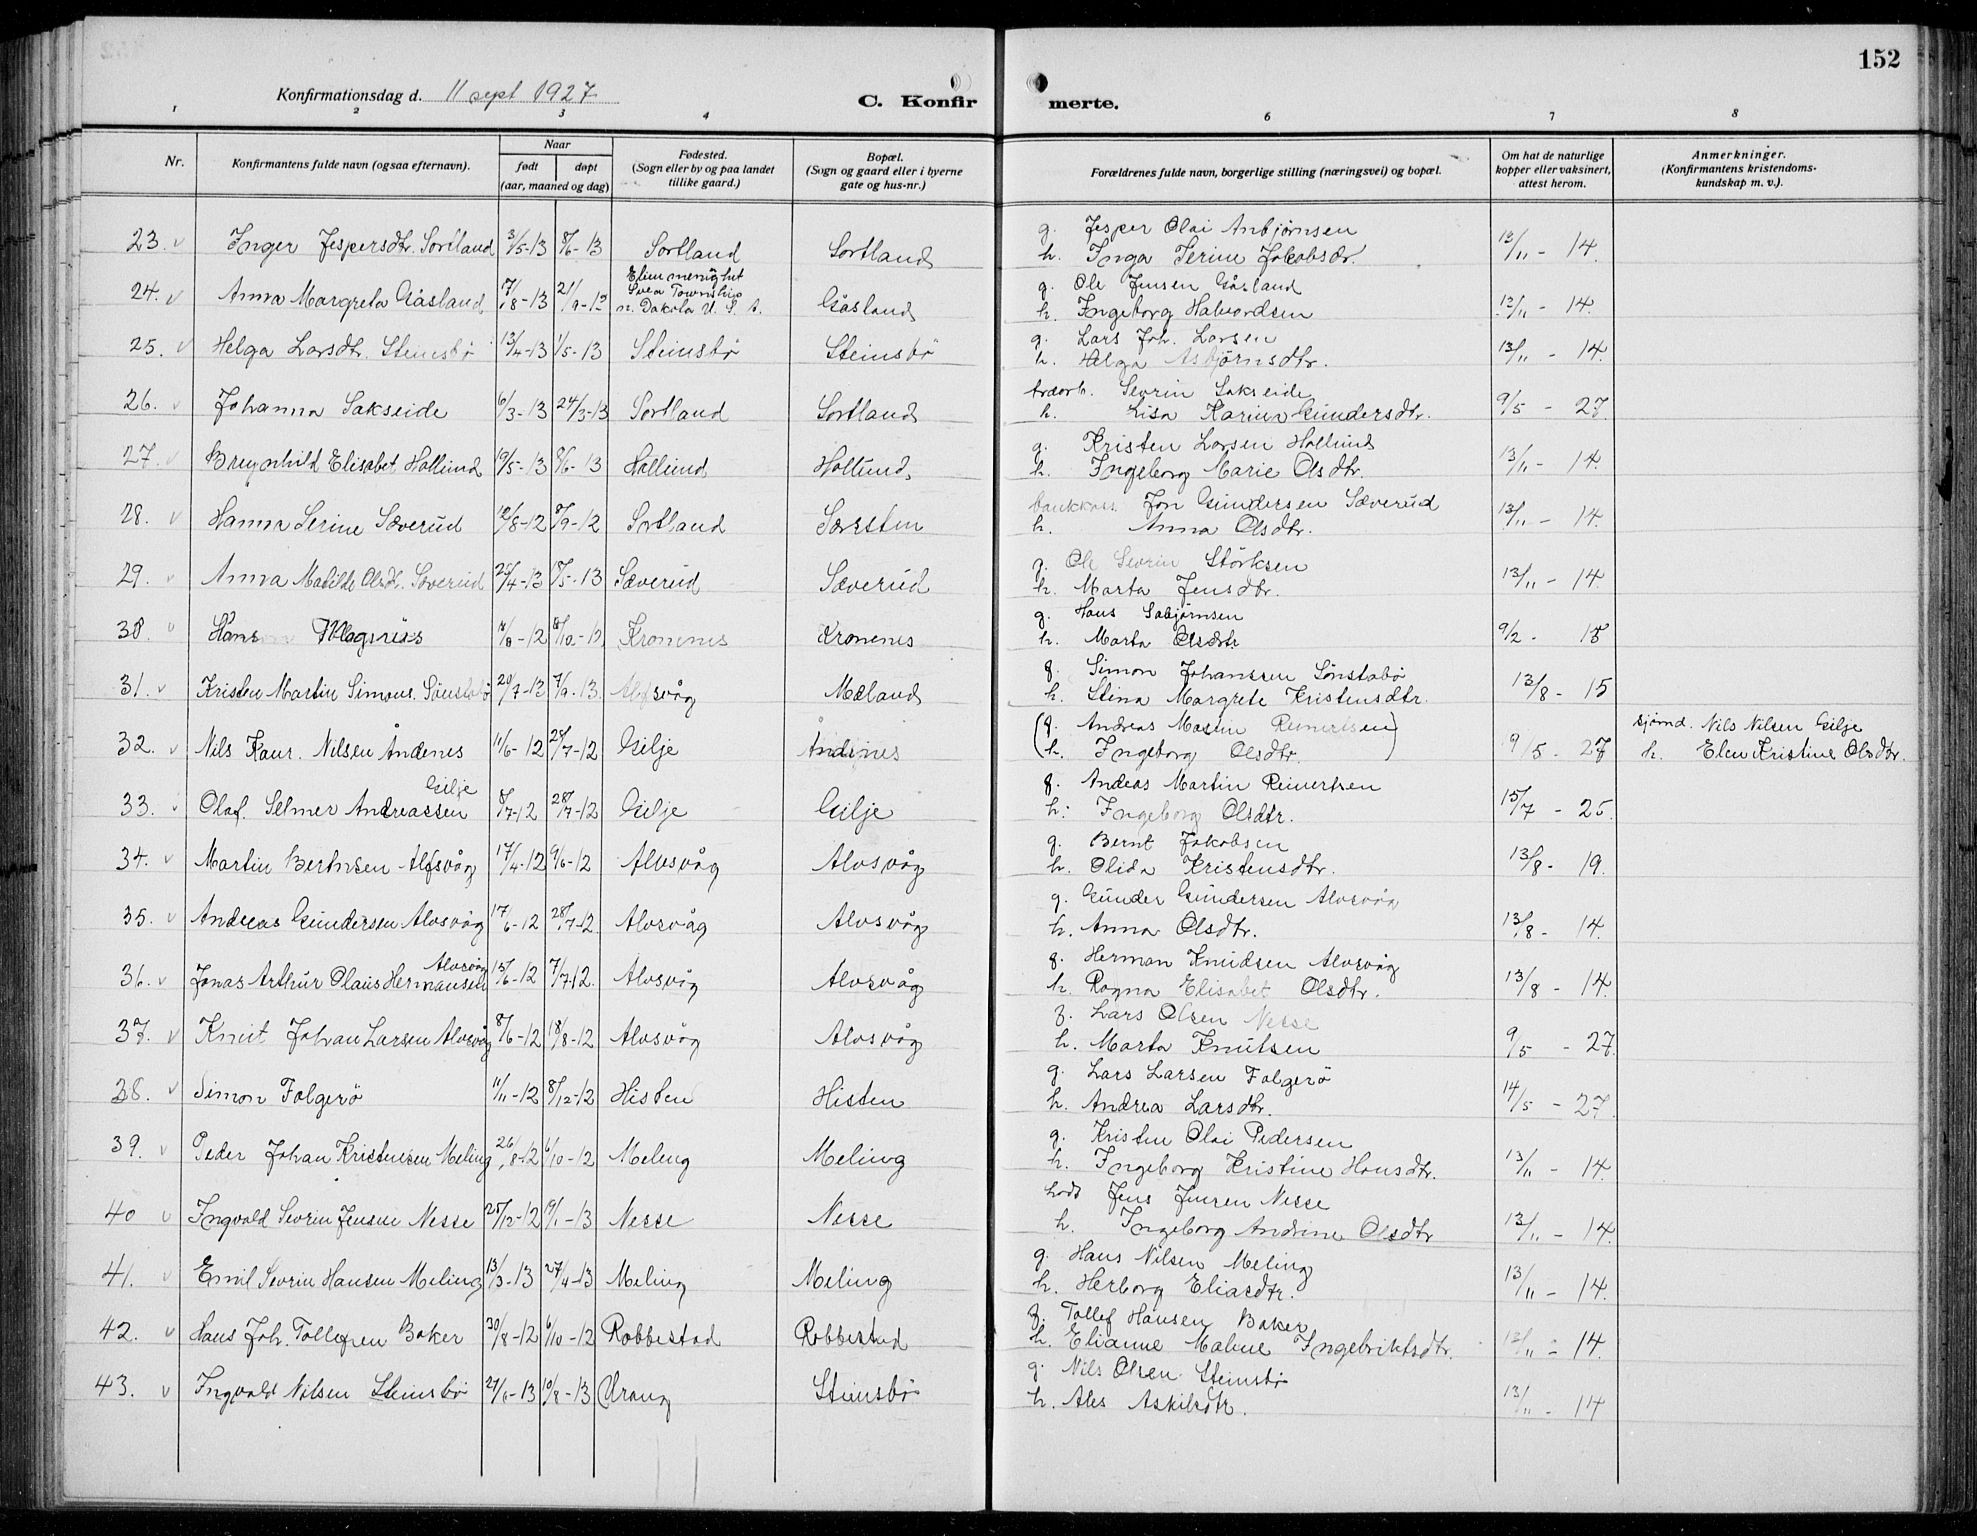 152
Konfirmationsdag d. 11 sept 1927
C. Konfirmerte.
1 2 3 4 5 6 7 8
Nr.
Konfirmantens fulde navn (ogsaa efternavn).
Naar
født døpt
(aar, maaned og dag)
Fødested.
(Sogn eller by og paa landet
tillike gaard.)
Bopæl.
(Sogn og gaard eller i byerne
gate og hus-nr.)
Forældrenes fulde navn, borgerlige stilling (næringsvei) og bopæl.
Om hat de naturlige
kopper eller vaksinert,
attest herom.
Anmerkninger.
(Konfirmantens kristendoms-
kundskap m. v.).
g. Jesper Olai Anbjørnsen
23. v Inger Jespersdtr. Sortland 3/5-13 8/6-13 Sortland Sortland h. Inga Serine Jakobsdr. 13/11 - 14.
24. v Anna Margreta Gåsland 17/8-13 21/9-13 Elim menighet Svea Township n. Dakota U. S. A. Gåsland g. Ole Jensen Gåsland
h. Ingeborg Halvordsen 13/11 - 14.
25. v Helga Larsdtr. Steinsbø 13/4-13 1/5-13 Steinsbø Steinsbø g. Lars Joh. Larsen
h. Helga Asbjørnsdtr. 13/11 - 14.
26. v Johanna Sakseide 6/3-13 24/3-13 Sortland Sortland Sevrin Sakseide
h. Lisa Karina Gundersdtr. 9/5 - 27
27. v Breynhild Elisabet Hollund 19/5-13 8/6-13 Hollund Hollund g. Kristen Larsen Hollund
h. Ingeborg Marie Olsdtr. 13/11 - 14.
28. v Hanna Serine Sæverud 10/8-12 8/9-12 Sortland Jon Gundersen Sæverud
h. Anna Olsdtr. 13/11 - 14.
29. v Anna Matilde Olsdt. Sæverud 25/4-13 18/5-13 Sæverud Sæverud g. Ole Sevrin Størksen
h. Marta Jensdtr. 13/11 - 14
30. v Hans Magnus /8-12 /10-12 Kronenes Kronenes g. Hans Sabjørnsen
h. Marta Olsdtr 9/2 - 15
31. v Kristen Martin Simons. Sønstabø 20/7-13 7/9-13. Alfsvåg Mæland g. Simon Johanssen Sønstabø
h. Stina Margrete Kristensdtr. 13/8 - 15
32. v Nils Kaur. Nilsen Åndenes 11/6-12 28/7-12 Gilje Åndenes (g. Andreas Martin Reinertsen)
(h. Ingeborg Olsdtr.) 9/5 - 27 sjømd. Nils Nilsen Gilje
h. Elen Kristine Olsdtr.
33. v Olaf. Selmer Andreassen Gilje 8/7-12 28/7-12 Gilje Gilje g. Andeas Martin Reinertsen
h: Ingeborg Olsdtr. 15/7 - 25.
34. v Martin Berntsen Alfsvåg 17/4-12 9/6-12 Alvsvåg Alvsvåg g. Bernt Jakobsen
h. Olida Kristensdtr. 13/8 - 19.
35. v Andreas Gundersen Alvsvåg 17/6-12 28/7-12. Alvsvåg Alvsvåg g. Gunder Gundersen Alvsvåg
h. Anna Olsdtr. 13/8 - 14.
36. v Jonas Arthur Olaus Hermansen Alvsvåg 15/6-12 7/7-12. Alvsvåg Alvsvåg g. Herman Knudsen Alvsvåg
h. Ragna Elisabet Olsdtr. 13/8 - 14.
37. v Knut Johan Larsen Alvsvåg 8/6-12 18/8-12 Alvsvåg Alvsvåg g. Lars Olsen Nesse
h. Marta Knutsen 9/5 - 27.
38. v Simon Folgerö 11/11-12 8/12-12 Histen Histen g. Lars Larsen Folgerö
h. Andrea Larsdtr. 14/5 - 27.
39. v Peder Johan Kristensen Meling 26/8-12 6/10-12 Meling Meling g. Kristen Olai Pedersen
h. Ingeborg Kristine Hansdtr. 13/11 - 14.
40 v Ingvald Sevrin Jensen Nesse 25/12-12 19/1-13 Nesse Nesse Jens Jensen Nesse
h. Ingeborg Andrine Olsdtr 13/11 - 14.
41. v Emil Sevrin Hansen Meling 13/3-13 27/4-13 Meling Meling g. Hans Nilsen Meling
h. Herborg Eliasdtr. 13/11 - 14.
42. v Hans Joh. Tollefsen Baker 30/8-12 6/10-12 Robbestad Robbestad g. Tollef Hansen Baker
h. Elianne Malene Ingebriktsdtr. 13/11 - 14.
43. v Ingvald Nilsen Steinsbø 27/6-13 10/8-13 Urang Steinsbø g. Nils Olsen Steinsbø
h. Ales Askilsdtr. 13/11 - 14